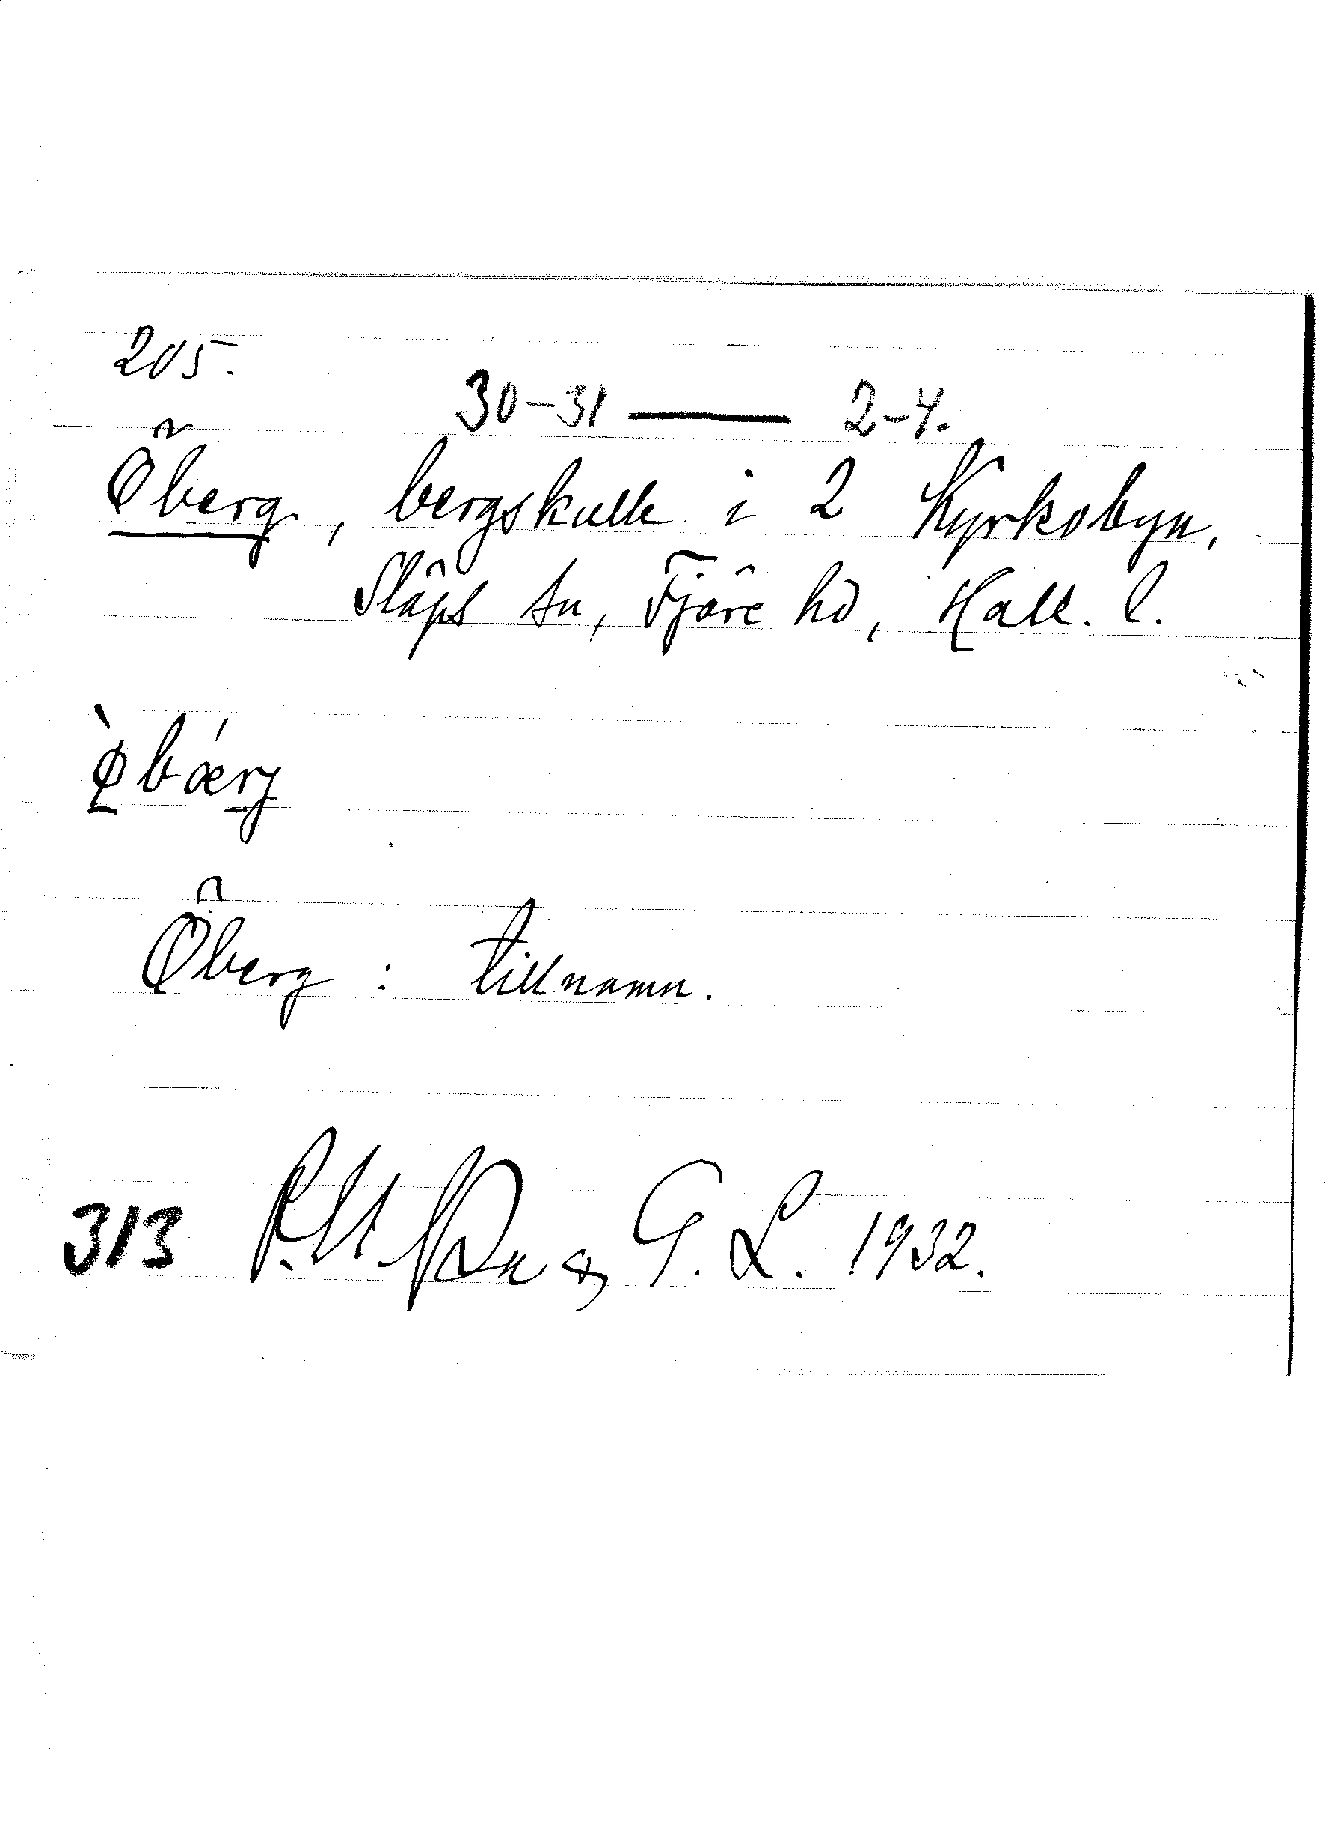 205.
30-31 — 2-4.
Öberg, bergskulle i 2 Kyrkobyn,
Släps sn, Fjäre hd, Hall. l.
ø̀bǽrj
Öberg: tillnamn.
313 G. L. 1932.